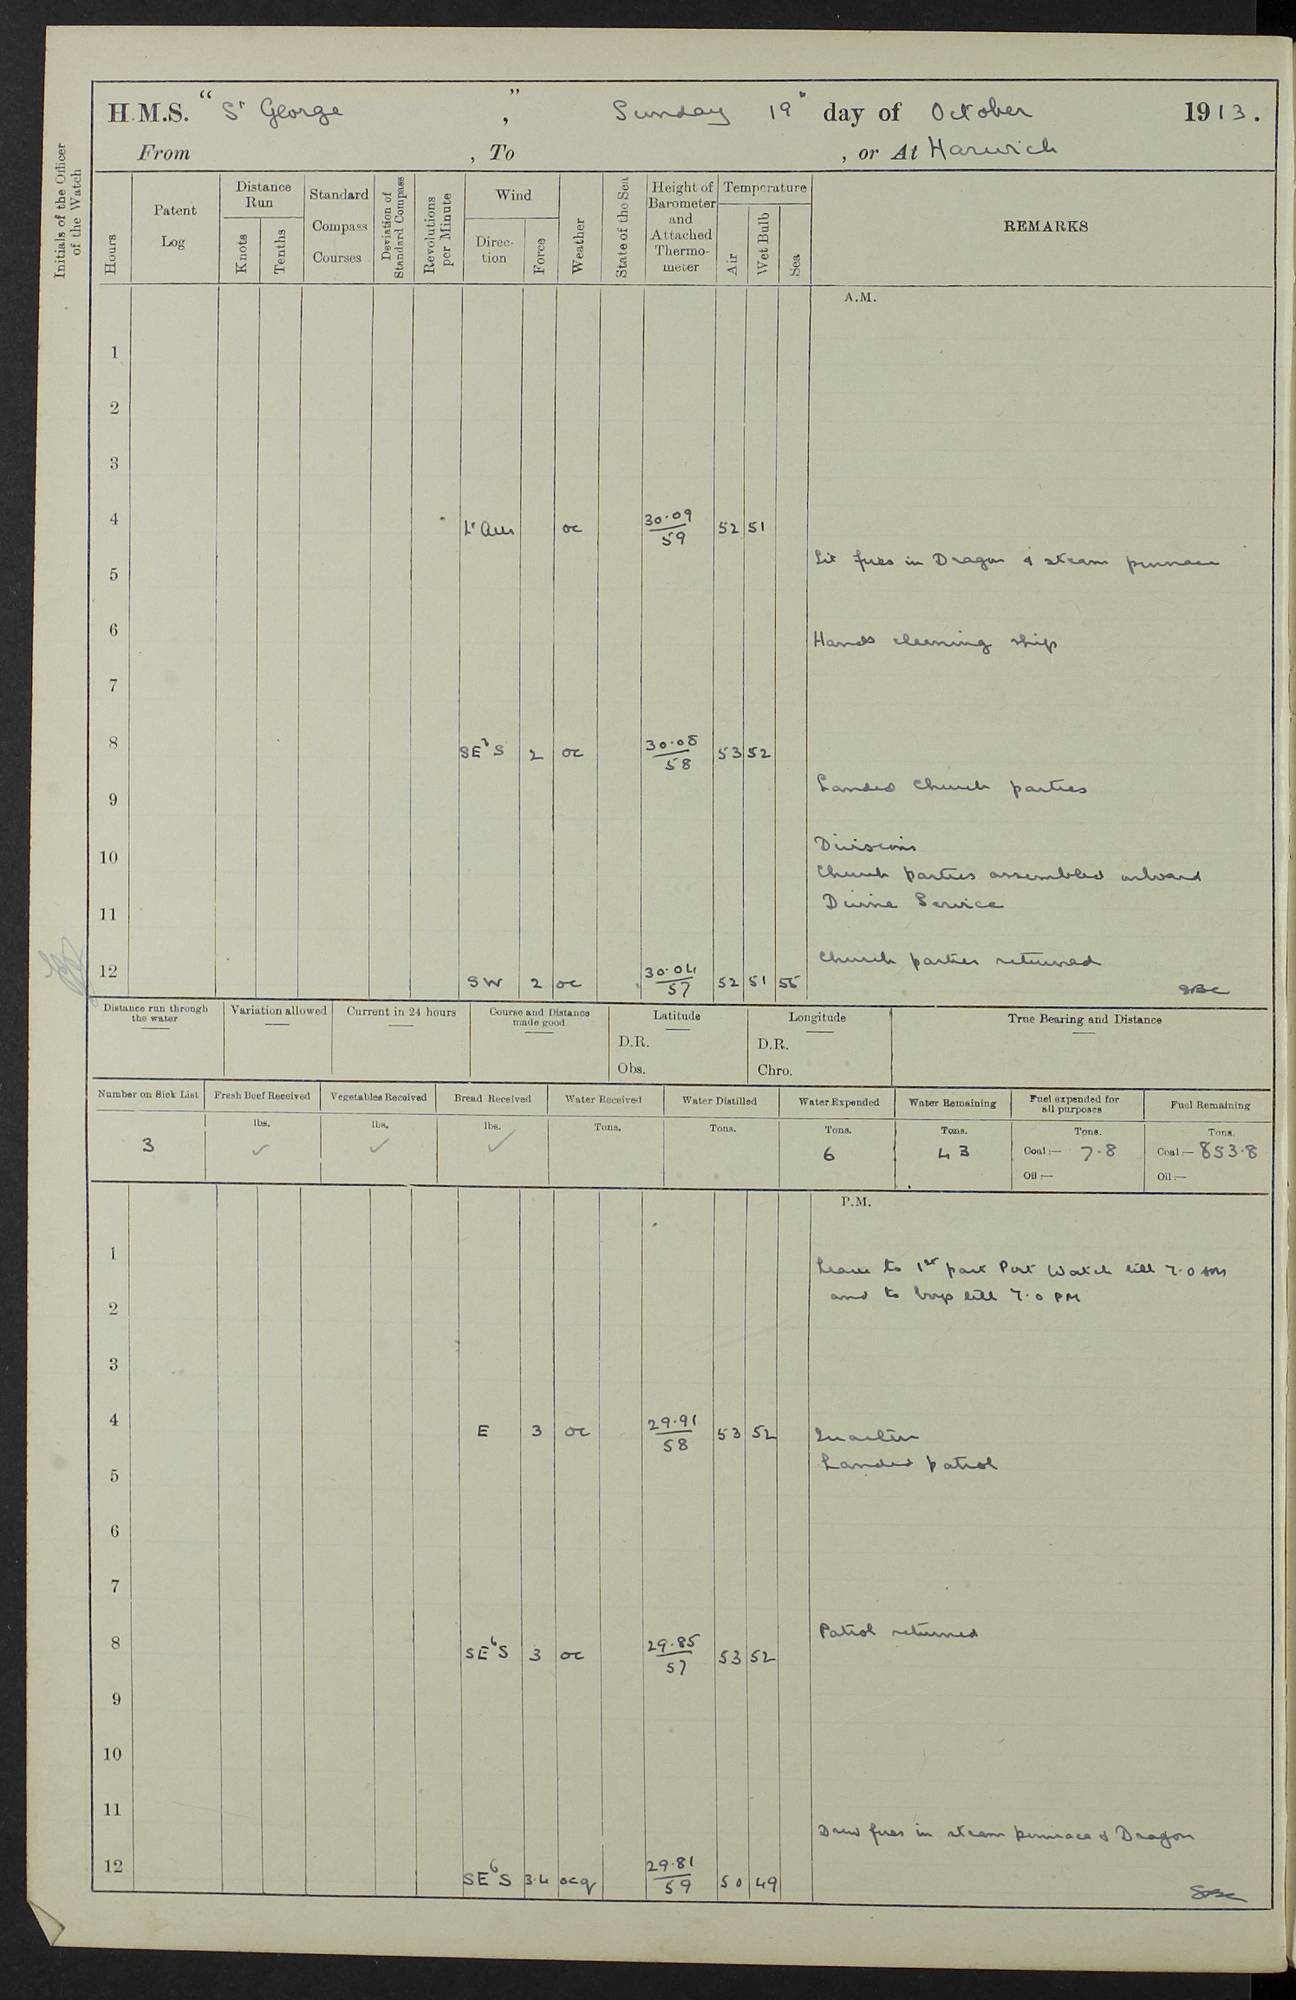 H.M.S. "St George", Sunday 19th day of October 1913.
From , To , or At Harwich
Initials of the Officer of the Watch
Hours
Patent Log
Distance Run
Knots
Tenths
Standard Compass Courses
Deviation of Standard Compass
Revolutions per Minute
Wind
Direction
Force
Weather
State of the Sea
Height of Barometer and Attached Thermometer
Temperature
Air
Wet Bulb
Sea
REMARKS
A.M.
1
2
3
4 Lt Airs oc 30.09 59 52 51
Lit fires in Dragon & steam pinnace
5
6 Hands cleaning ship
7
8 SE b S 2 oc 30.08 58 53 52
Landed Church parties
9
Divisions
10
Church parties assembled onboard
Divine Service
11
Church parties returned
12 SW 2 oc 30.04 57 52 51 55
SBC
Distance run through the water
Variation allowed
Current in 24 hours
Course and Distance made good
Latitude
D.R.
Obs.
Longitude
D.R.
Chro.
True Bearing and Distance
Number on Sick List
3
Fresh Beef Received
lbs.
✓
Vegetables Received
lbs.
✓
Bread Received
lbs.
✓
Water Received
Tons.
Water Distilled
Tons.
Water Expended
Tons.
6
Water Remaining
Tons.
43
Fuel expended for all purposes
Tons.
Coal:— 7.8
Oil:—
Fuel Remaining
Tons.
Coal:— 853.8
Oil:—
P.M.
1
Leave to 1st part Port Watch till 7.0 AM
and to boys till 7.0 PM
2
3
4 E 3 oc 29.91 58 53 52
Quarters
Landed patrol
5
6
7
Patrol returned
8 SE b S 3 oc 29.85 57 53 52
9
10
11
Drew fires in steam pinnace & Dragon
12 SE b S 3.4 ocq 29.81 59 50 49
SBC